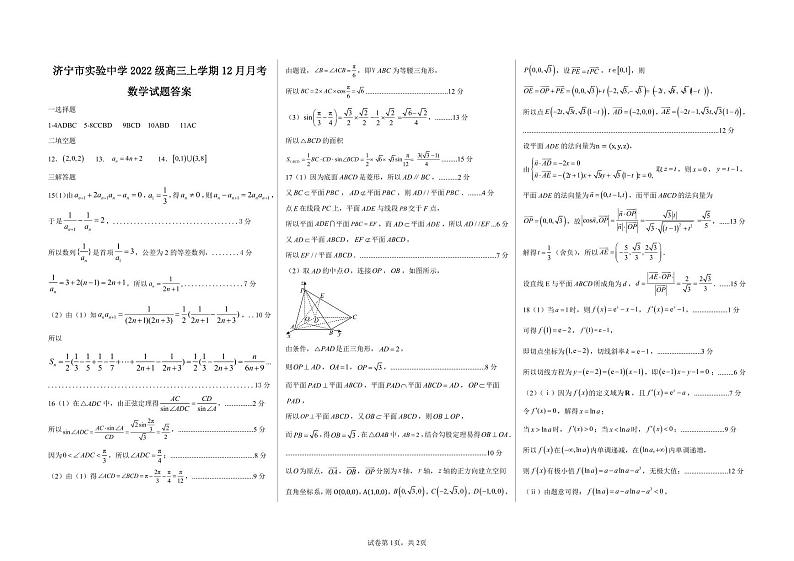 济宁市实验中学 2022 级高三上学期 12 月月考
数学试题答案
一选择题
1-4ADBC 5-8CCBD 9BCD 10ABD 11AC
二填空题
12. (2,0,2) 13. aₙ=4n+2 14. [0,1)∪(3,8]
三解答题
15(1)由aₙ₊₁+2aₙ₊₁aₙ−aₙ=0, a₁=1/3, 得aₙ≠0, 则aₙ−aₙ₊₁=2aₙaₙ₊₁,
于是1/aₙ₊₁−1/aₙ=2, ......3 分
所以数列{1/aₙ}是首项1/a₁=3, 公差为 2 的等差数列, ........4 分
1/aₙ=3+2(n−1)=2n+1, 所以aₙ=1/(2n+1) ......7 分
(2)由(1)知aₙaₙ₊₁=1/((2n+1)(2n+3))=1/2(1/(2n+1)−1/(2n+3)), ...10 分
所以
Sₙ=1/2(1/3−1/5+1/5−1/7+⋯+1/(2n+1)−1/(2n+3))=1/2(1/3−1/(2n+3))=n/(6n+9) ...
......13 分
16(1)在△ADC中, 由正弦定理得AC/sin∠ADC=CD/sin∠A, ......2 分
所以sin∠ADC=AC·sin∠A/CD=√2sin(2π/3)/√3=√2/2, ......5 分
因为0<∠ADC<π/3, 所以∠ADC=π/4; ......8 分
(2)由(1)得∠ACD=∠BCD=π−2π/3−π/4=π/12, ......9 分
由题设, ∠B=∠ACB=π/6, 即V ABC为等腰三角形,
所以BC=2×AC×cosπ/6=√6 ......12 分
(3)sin(π/3−π/4)=√3/2×√2/2−1/2×√2/2=(√6−√2)/4, .........13 分
所以△BCD的面积
S△BCD=1/2BC·CD·sin∠BCD=1/2×√6×√3sinπ/12=3(√3−1)/4 ........15 分
17(1)因为底面ABCD是菱形, 所以AD∥BC, .........2 分
又BC⊂平面PBC, AD⊄平面PBC, 则AD//平面PBC. .......4 分
点E在线段PC上, 平面ADE与线段PB交于F点,
所以平面ADE∩平面PBC=EF, 而AD⊂平面ADE, 所以AD//EF ...6 分
又AD⊂平面ABCD, EF⊄平面ABCD,
所以EF//平面ABCD. ......7 分
(2)取AD的中点O, 连接OP, OB, 如图所示,
由条件, △PAD是正三角形, AD=2,
则OP⊥AD, OA=1, OP=√3, ......8 分
而平面PAD⊥平面ABCD, 平面PAD∩平面ABCD=AD, OP⊂平面
PAD,
所以OP⊥平面ABCD, 又OB⊂平面ABCD, 则OB⊥OP,
而PB=√6, 得OB=√3. 在△OAB中, AB=2, 结合勾股定理易得OB⊥OA.
......10 分
以O为原点, OA, OB, OP分别为x轴, y轴, z轴的正方向建立空间
直角坐标系, 则 O(0,0,0), A(1,0,0), B(0,√3,0), C(−2,√3,0), D(−1,0,0),
P(0,0,√3), 设PE=tPC, t∈[0,1], 则
OE=OP+PE=(0,0,√3)+t(−2,√3,−√3)=(−2t,√3t,√3(1−t)),
所以点E(−2t,√3t,√3(1−t)), AD=(−2,0,0), AE=(−2t−1,√3t,√3(1−t)),
......12 分
设平面ADE的法向量为n=(x,y,z),
由{n·AD=−2x=0
n·AE=−(2t+1)x+√3ty+√3(1−t)z=0, 取z=t, 则x=0, y=t−1,
平面ADE的法向量为n=(0,t−1,t), 而平面ABCD的法向量为
OP=(0,0,√3), 故|cos⟨n,OP⟩|=|n·OP|/(|n|·|OP|)=√3|t|/(√3·√((t−1)²+t²))=√5/5, ......13 分
解得t=1/3 (舍负), 所以AE=(−5/3,√3/3,2√3/3).
设直线 E 与平面ABCD所成角为d, d=|AE·OP|/|OP|=2/√3=2√3/3, ......15 分
18(1)当a=1时, 则f(x)=eˣ−x−1, f′(x)=eˣ−1, ......1 分
可得f(1)=e−2, f′(1)=e−1,
即切点坐标为(1,e−2), 切线斜率k=e−1, ......3 分
所以切线方程为y−(e−2)=(e−1)(x−1), 即(e−1)x−y−1=0; ........6 分
(2)(ⅰ)因为f(x)的定义域为R, 且f′(x)=eˣ−a, ......7 分
令f′(x)=0, 解得x=lna;
当x>lna时, f′(x)>0; 当x<lna时, f′(x)<0; ......9 分
所以f(x)在(−∞,lna)内单调递减, 在(lna,+∞)内单调递增,
则f(x)有极小值f(lna)=a−alna−a³, 无极大值; ......12 分
(ⅱ)由题意可得: f(lna)=a−alna−a³<0,
试卷第 1页, 共 2页